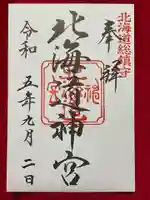 北海道総鎮守
奉拝
北海道神宮
令和五年九月二日